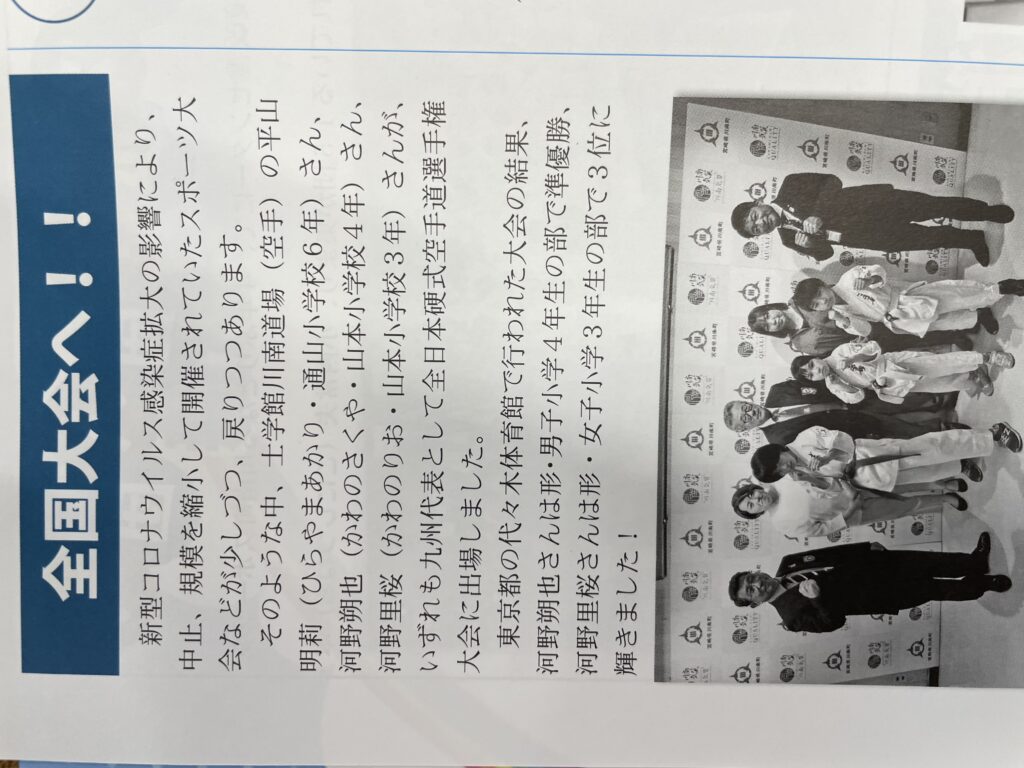 全国大会へ！！
新型コロナウイルス感染症拡大の影響により、
中止、規模を縮小して開催されていたスポーツ大
会などが少しづつ、戻りつつあります。
そのような中、士学館川南道場（空手）の平山
明莉（ひらやまあかり・通山小学校６年）さん、
河野朔也（かわのさくや・山本小学校４年）さん、
河野里桜（かわのりお・山本小学校３年）さんが、
いずれも九州代表として全日本硬式空手道選手権
大会に出場しました。
東京都の代々木体育館で行われた大会の結果、
河野朔也さんは形・男子小学４年生の部で準優勝、
河野里桜さんは形・女子小学３年生の部で３位に
輝きました！
宮崎県川南町
QUALITY